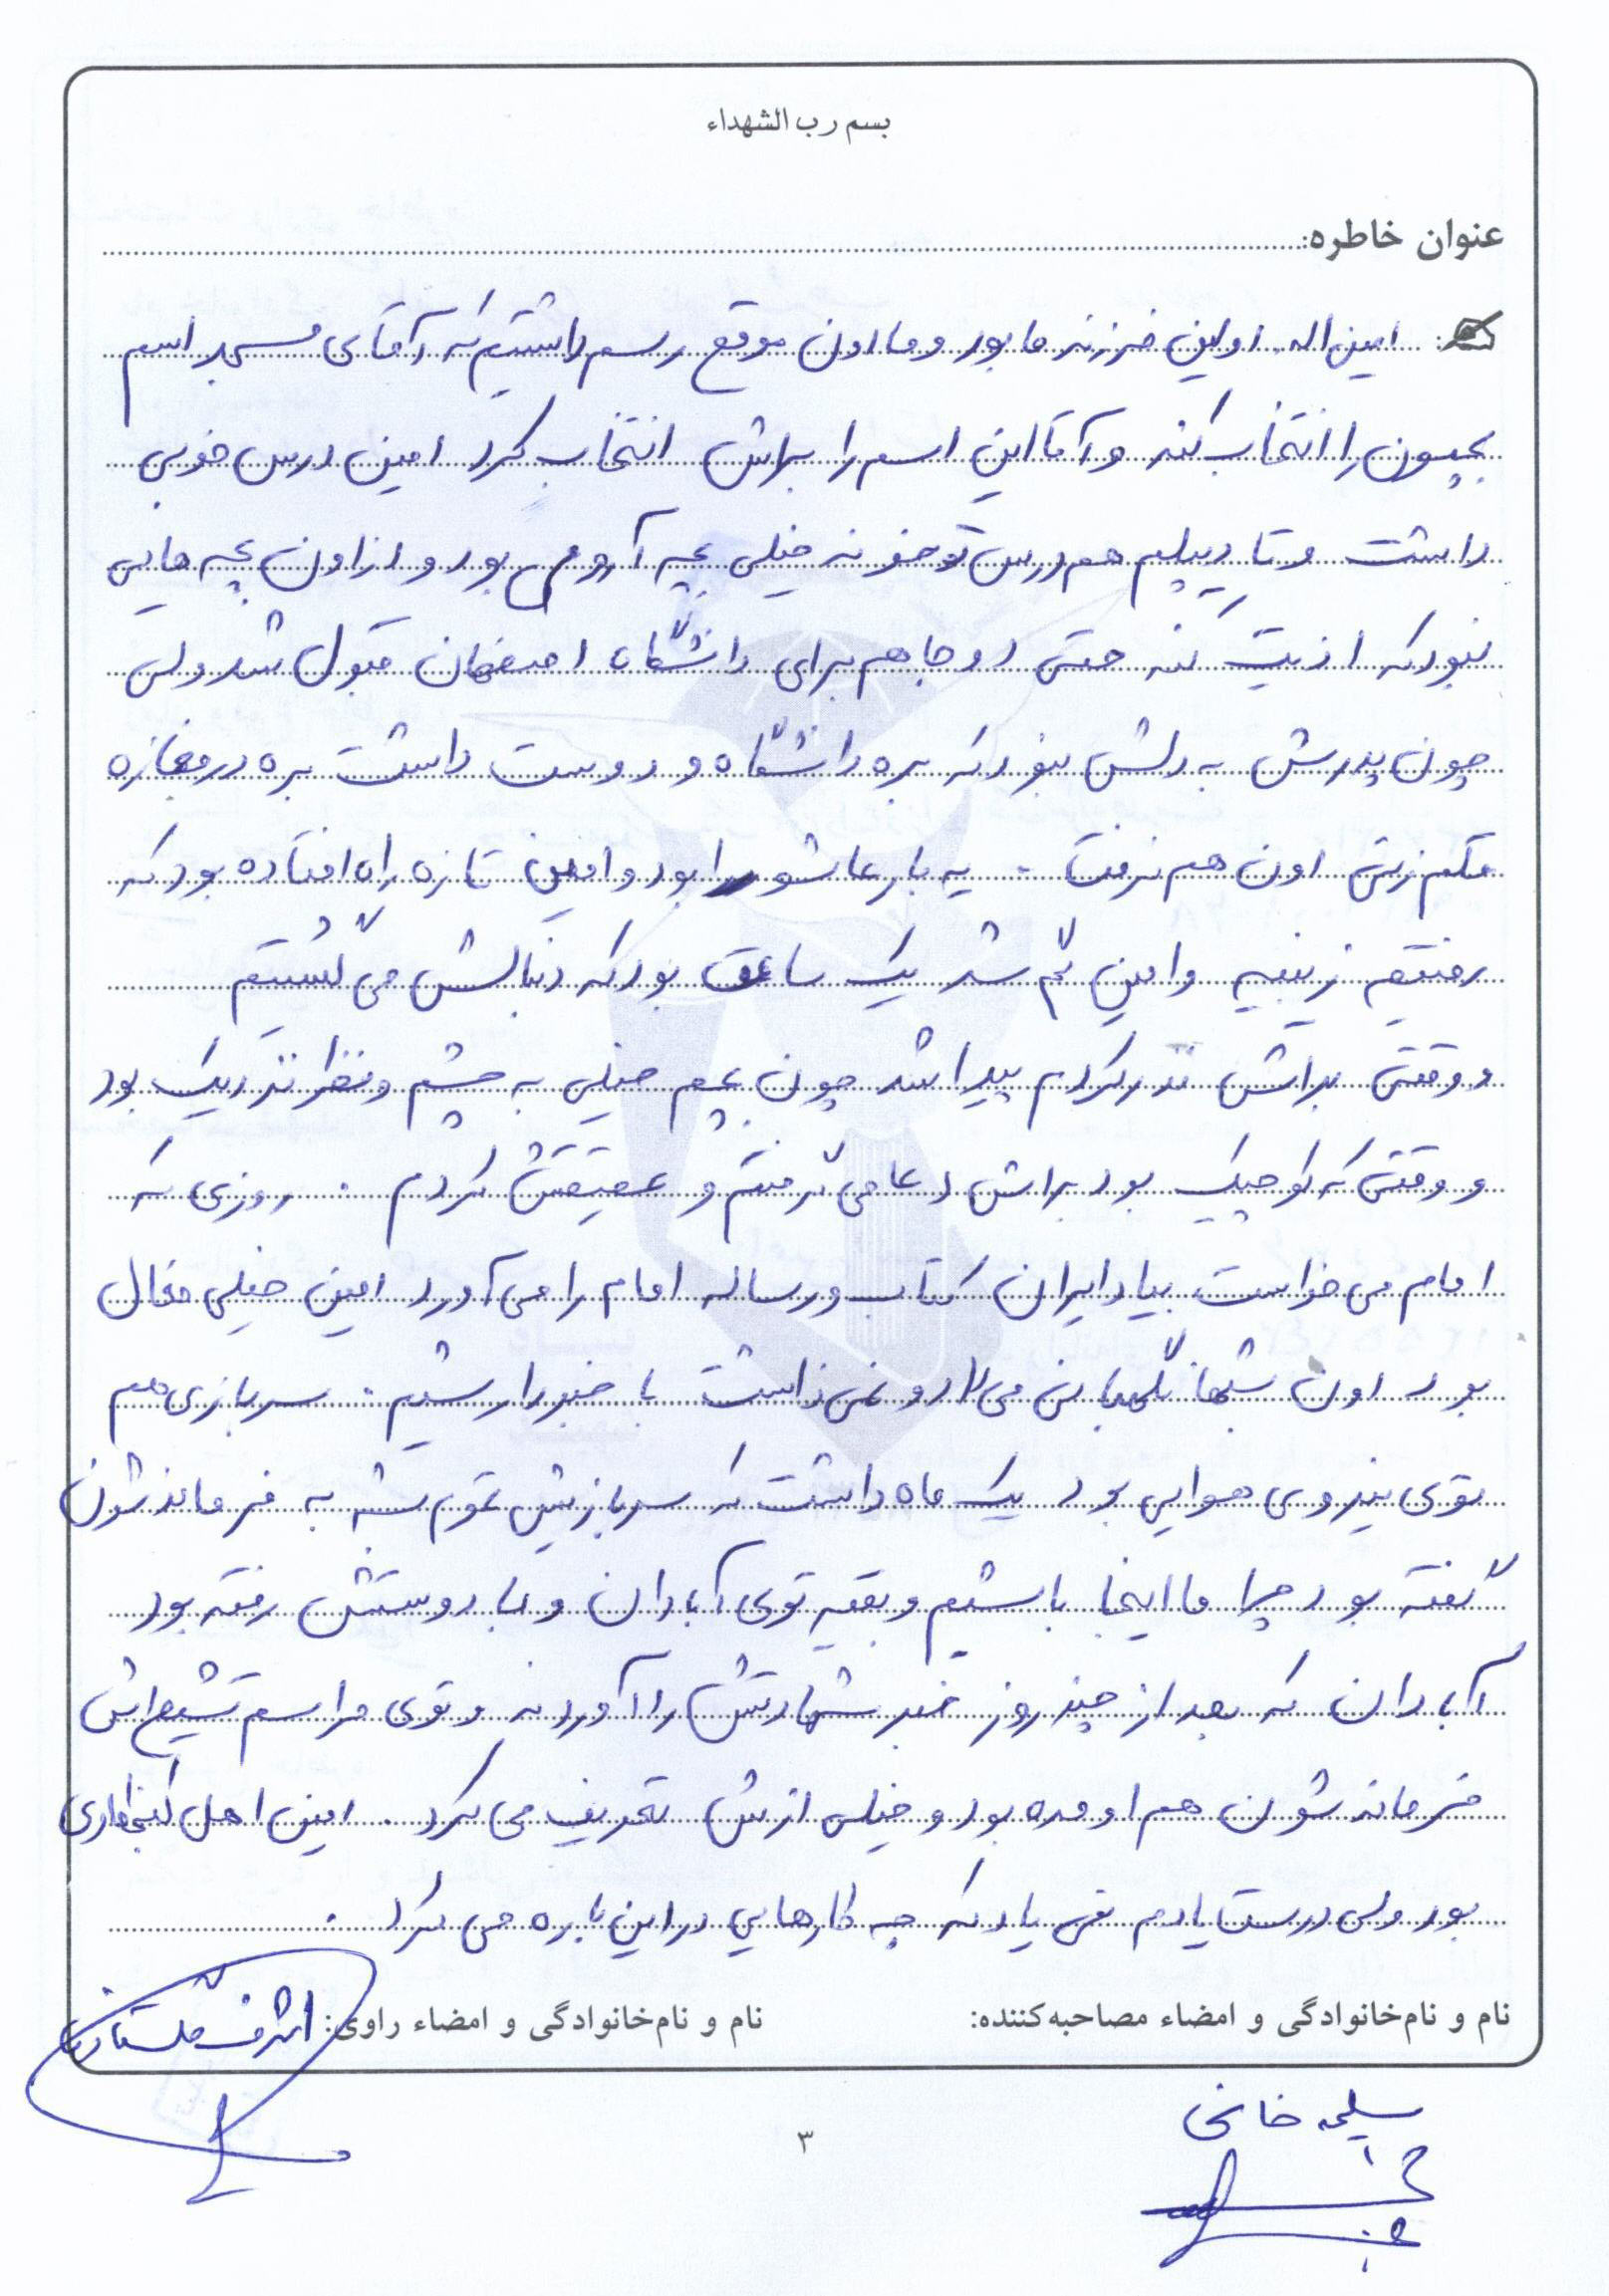 بسم رب الشهداء
عنوان خاطره:
امین اله اولین فرزند ما بود و ما اون موقع رسم داشتیم که آقای مسجد اسم
بچمون را انتخاب کند و آقا این اسم را براش انتخاب کرد امین درس خوبی
داشت و تا دیپلم هم درس تو خونه خیلی بچه آرومی بود و از اون بچه هایی
نبود که اذیت کنه حتی اونجا هم برای دانشگاه اصفهان قبول شد ولی
چون پدرش به دلش نبود که بره دانشگاه و دوست داشت بره در مغازه
اون هم نرفت . یه بار عاشورا بود و امین تازه راه افتاده بود که
رفتیم زینبیه و امین گم شد یک ساعت بود که دنبالش می گشتیم
وقتی براش نذر کردم پیدا شد چون بچم خیلی به چشم و نظر نزدیک بود
و وقتی که کوچیک بود براش دعا می گرفتم و عقیقش کردم . روزی که
امام می خواست بیاد ایران کتاب و رساله امام را می آورد امین خیلی فعال
بود اون شبها نگهبانی می داد و نمی ذاشت با خبر دار بشیم . سربازی هم
توی نیروی هوایی بود یک ماه داشت که سربازیش تموم بشه به فرماندشون
گفته بود چرا ما اینجا باشیم و بقیه توی آبادان و با دوستش رفته بود
آبادان که بعد از چند روز خبر شهادتش را آوردند و توی مراسم تشییع اش
فرماندشون هم اومده بود و خیلی ازش تعریف می کرد . امین اهل
بود ولی درست یادم نمی یاد که چه کارهایی در این باره می کرد .
نام و نام‌خانوادگی و امضاء مصاحبه‌کننده:
نام و نام‌خانوادگی و امضاء راوی: اشرف
خانی
۳